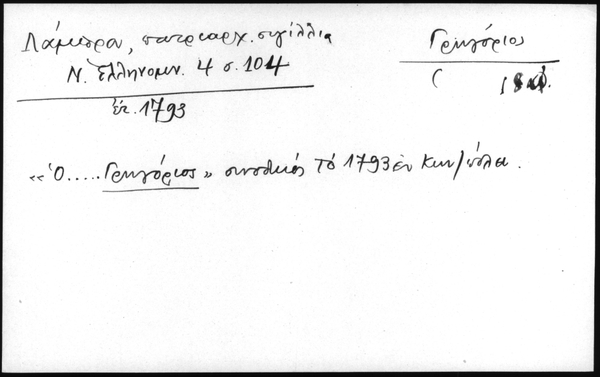 Λάμπρου, πατριαρχ. σιγίλλια
Ν. Ἑλληνομν. 4 σ. 104
ἔτ. 1793
Γρηγόριος
(
«Ὁ ..... Γρηγόριος» συνοδικός τό 1793 ἐν Κων/πόλει.